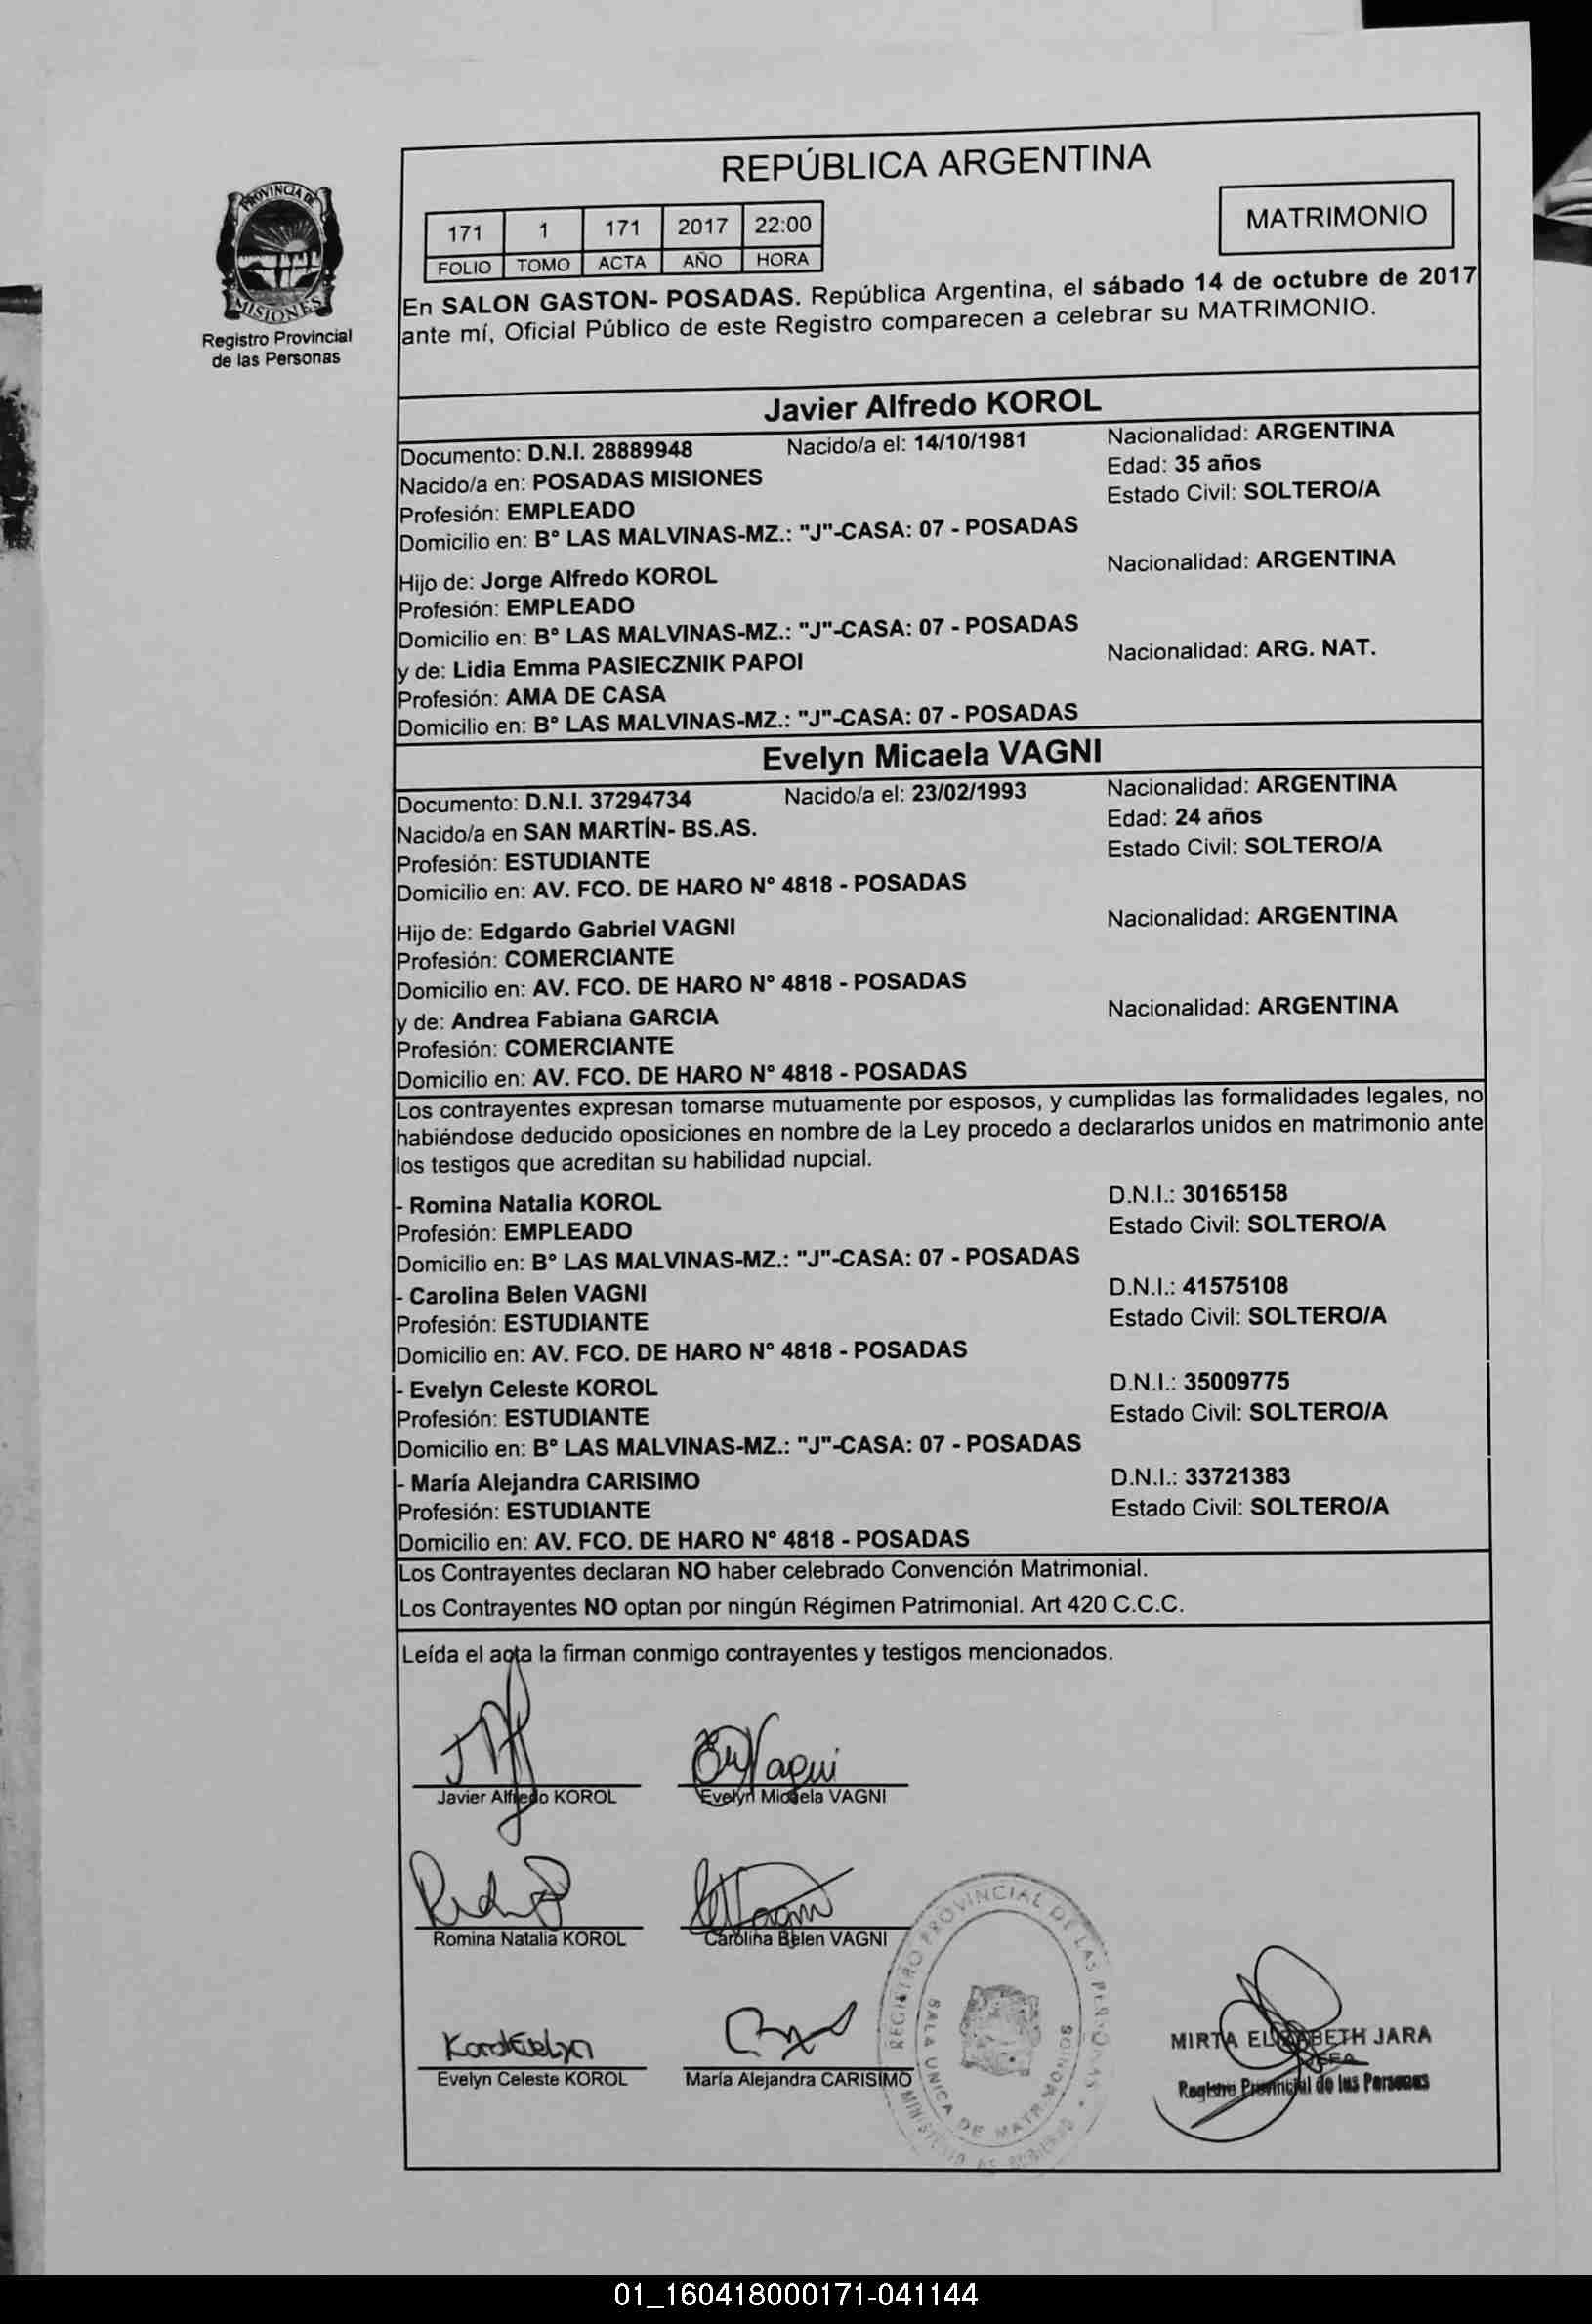 REPÚBLICA ARGENTINA
PROVINCIA DE
MISIONES
Registro Provincial
de las Personas
171 1 171 2017 22:00
FOLIO TOMO ACTA AÑO HORA
MATRIMONIO
En SALON GASTON- POSADAS. República Argentina, el sábado 14 de octubre de 2017
ante mí, Oficial Público de este Registro comparecen a celebrar su MATRIMONIO.
Javier Alfredo KOROL
Documento: D.N.I. 28889948 Nacido/a el: 14/10/1981 Nacionalidad: ARGENTINA
Nacido/a en: POSADAS MISIONES Edad: 35 años
Profesión: EMPLEADO Estado Civil: SOLTERO/A
Domicilio en: Bº LAS MALVINAS-MZ.: "J"-CASA: 07 - POSADAS
Hijo de: Jorge Alfredo KOROL Nacionalidad: ARGENTINA
Profesión: EMPLEADO
Domicilio en: Bº LAS MALVINAS-MZ.: "J"-CASA: 07 - POSADAS
y de: Lidia Emma PASIECZNIK PAPOI Nacionalidad: ARG. NAT.
Profesión: AMA DE CASA
Domicilio en: Bº LAS MALVINAS-MZ.: "J"-CASA: 07 - POSADAS
Evelyn Micaela VAGNI
Documento: D.N.I. 37294734 Nacido/a el: 23/02/1993 Nacionalidad: ARGENTINA
Nacido/a en SAN MARTÍN- BS.AS. Edad: 24 años
Profesión: ESTUDIANTE Estado Civil: SOLTERO/A
Domicilio en: AV. FCO. DE HARO Nº 4818 - POSADAS
Hijo de: Edgardo Gabriel VAGNI Nacionalidad: ARGENTINA
Profesión: COMERCIANTE
Domicilio en: AV. FCO. DE HARO Nº 4818 - POSADAS
y de: Andrea Fabiana GARCIA Nacionalidad: ARGENTINA
Profesión: COMERCIANTE
Domicilio en: AV. FCO. DE HARO Nº 4818 - POSADAS
Los contrayentes expresan tomarse mutuamente por esposos, y cumplidas las formalidades legales, no
habiéndose deducido oposiciones en nombre de la Ley procedo a declararlos unidos en matrimonio ante
los testigos que acreditan su habilidad nupcial.
- Romina Natalia KOROL D.N.I.: 30165158
Profesión: EMPLEADO Estado Civil: SOLTERO/A
Domicilio en: Bº LAS MALVINAS-MZ.: "J"-CASA: 07 - POSADAS
- Carolina Belen VAGNI D.N.I.: 41575108
Profesión: ESTUDIANTE Estado Civil: SOLTERO/A
Domicilio en: AV. FCO. DE HARO Nº 4818 - POSADAS
- Evelyn Celeste KOROL D.N.I.: 35009775
Profesión: ESTUDIANTE Estado Civil: SOLTERO/A
Domicilio en: Bº LAS MALVINAS-MZ.: "J"-CASA: 07 - POSADAS
- María Alejandra CARISIMO D.N.I.: 33721383
Profesión: ESTUDIANTE Estado Civil: SOLTERO/A
Domicilio en: AV. FCO. DE HARO Nº 4818 - POSADAS
Los Contrayentes declaran NO haber celebrado Convención Matrimonial.
Los Contrayentes NO optan por ningún Régimen Patrimonial. Art 420 C.C.C.
Leída el acta la firman conmigo contrayentes y testigos mencionados.
Javier Alfredo KOROL Evelyn Micaela VAGNI
Romina Natalia KOROL Carolina Belen VAGNI
Korol Evelyn
Evelyn Celeste KOROL María Alejandra CARISIMO
REGISTRO PROVINCIAL DE LAS PERSONAS
SALA UNICA DE MATRIMONIOS
MINISTERIO DE GOBIERNO
MIRTA ELIZABETH JARA
JEFA
Registro Provincial de las Personas
01_160418000171-041144